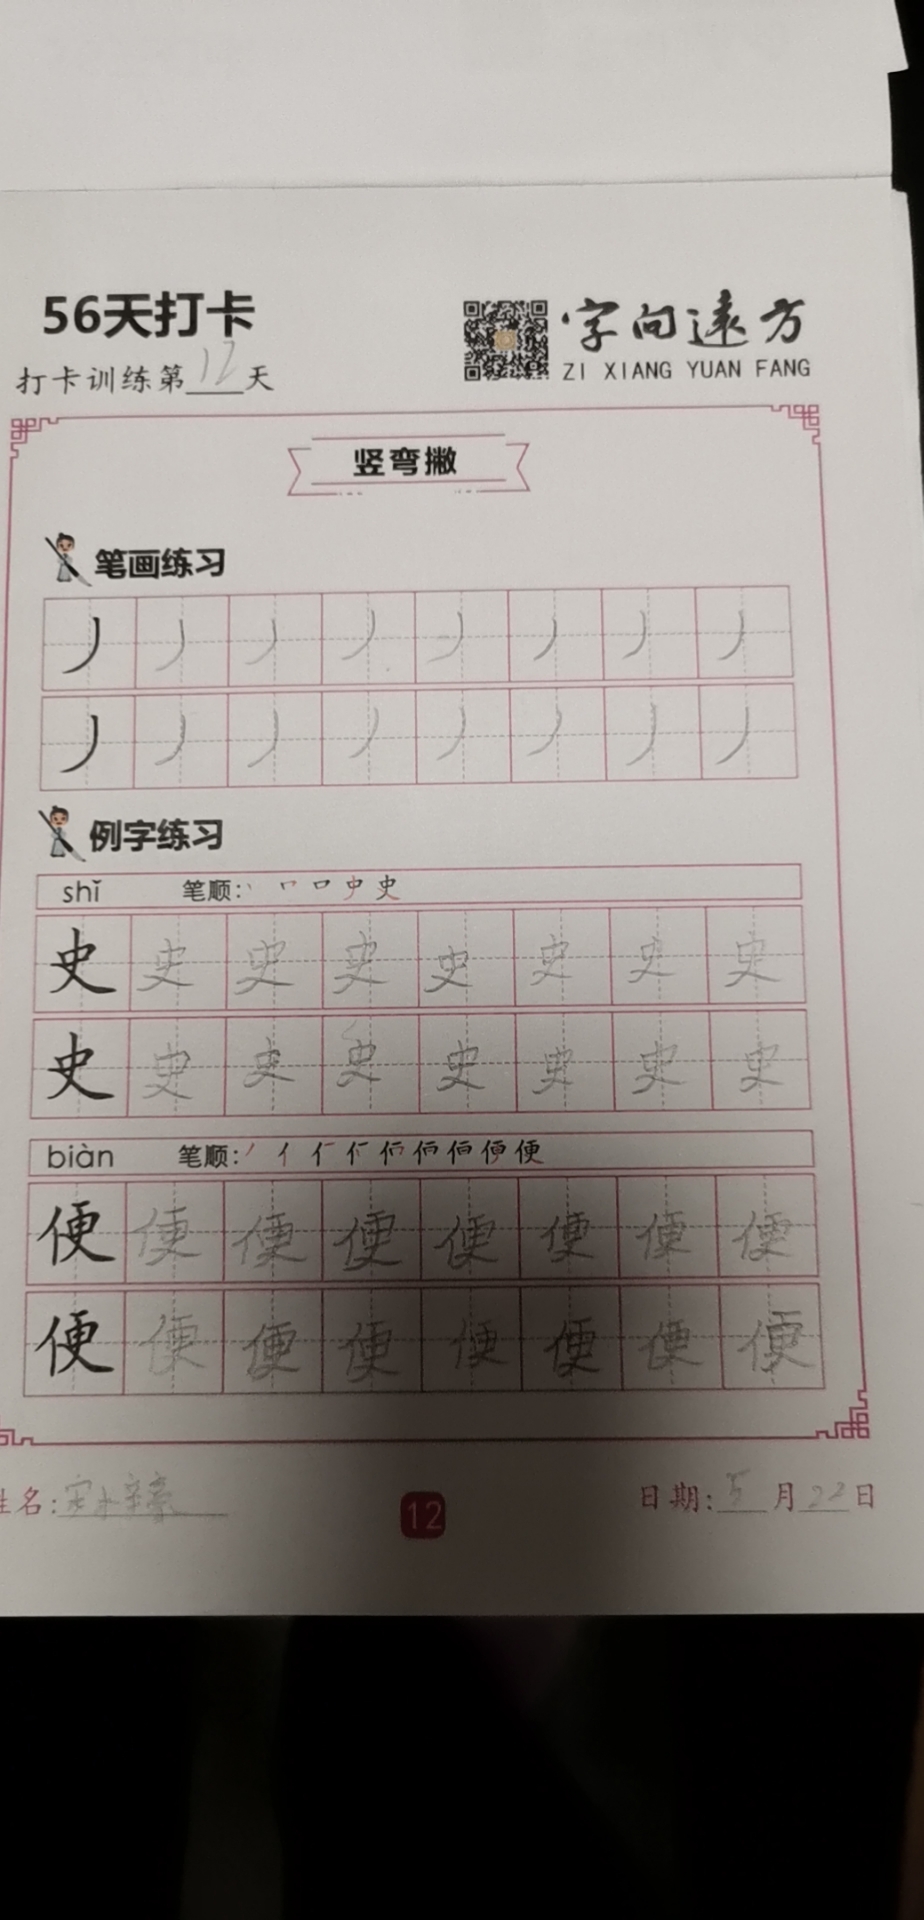 56天打卡
打卡训练第12天
字向遠方
ZI XIANG YUAN FANG
竖弯撇
笔画练习
丿 丿 丿 丿 丿 丿 丿 丿
丿 丿 丿 丿 丿 丿 丿 丿
例字练习
shǐ 笔顺: 丨 𠃍 口 史 史
史 史 史 史 史 史 史 史
史 史 史 史 史 史 史 史
biàn 笔顺: 丿 亻
便 便 便 便 便 便 便 便
便 便 便 便 便 便 便 便
姓名:
12
日期: 5 月 22 日